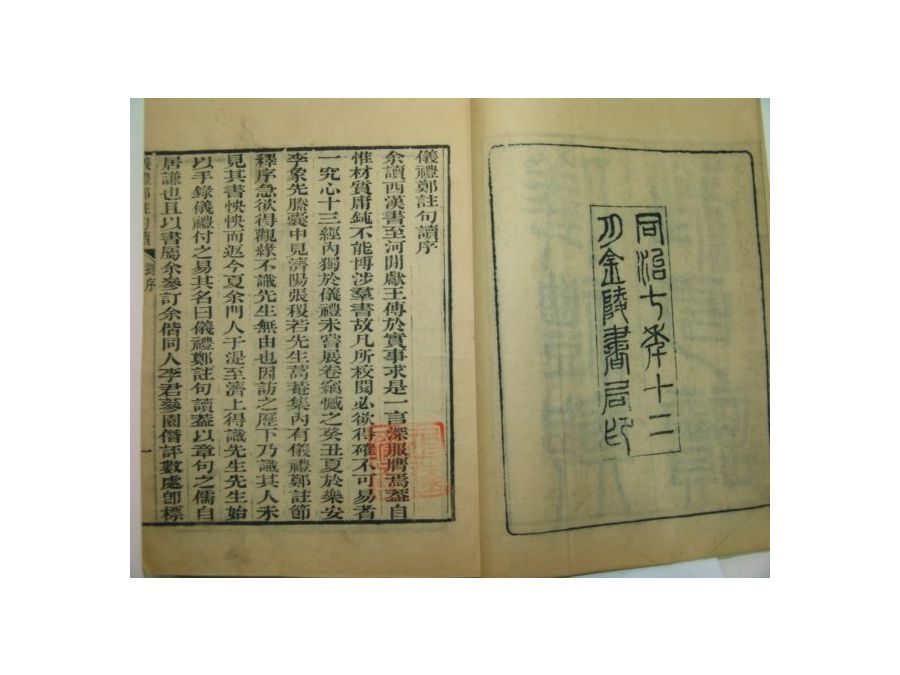 同治七年十二
月金陵書局印
儀禮鄭註句讀序
余讀西漢書至河間獻王傳於實事求是一言深服膺焉蓋自
惟材質庸鈍不能博涉羣書故凡所校閱必欲得確不可易者
一究心十三經內獨於儀禮未嘗展卷竊憾之癸丑夏於樂安
李象先謄囊中見濟陽張稷若先生蒿菴集內有儀禮鄭註節
釋序急欲得觀緣不識先生無由也因訪之歷下乃識其人未
見其書怏怏而返今夏余門人于湜至濟上得識先生先生始
以手錄儀禮付之易其名曰儀禮鄭註句讀蓋以章句之儒自
居謙也且以書屬余參訂余偕同人李君蔘園僭評數處卽標
儀禮鄭註句讀 劉序 一